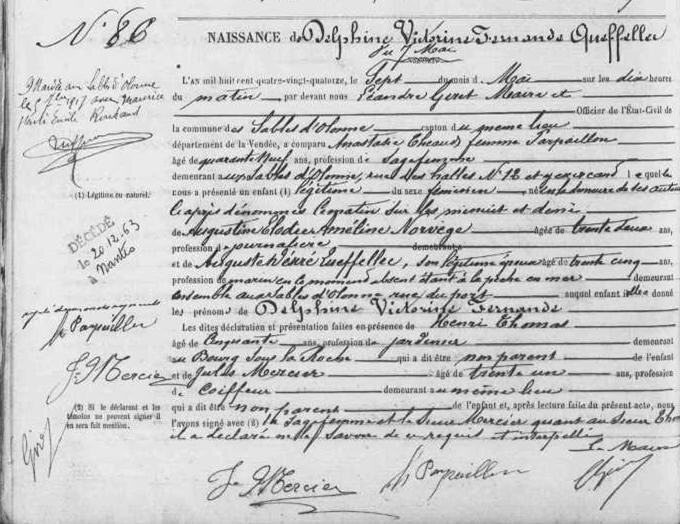 N° 86
NAISSANCE de Delphine Victorine Fernande Queffeller
du 7 Mai
L'AN mil huit cent quatre-vingt-quatorze, le Sept du mois d Mai sur les dix heures
du matin par devant nous Léandre Maire et
Officier de l'État-Civil de
la commune des Sables d'Olonne canton du même lieu
département de la Vendée, a comparu Anastasie femme Parpaillon
âgé de quarante neuf ans, profession de Sage femme
demeurant aux Sables d'Olonne, rue des halles N° 12 et y exerçant lequel
nous a présenté un enfant (1) légitime du sexe féminin né en la demeure de ses auteurs
ci après dénommés ce matin sur les et demie
de Augustine Elodie Ameline Norvège âgé de trente deux ans,
profession de journalière demeurante
et de Auguste Queffeller, son légitime époux âgé de trente cinq ans,
profession de marin en ce moment absent étant à la pêche en mer demeurant
ensemble aux Sables d'Olonne rue du port auquel enfant ille a donné
les prénoms de Delphine Victorine Fernande
Les dites déclaration et présentation faites en présence de Henri Thomas
âgé de Cinquante ans, profession de jardinier demeurant
au Bourg sous la Roche qui a dit être non parent de l'enfant
et de Jules Mercier âgé de trente un ans, profession
de coiffeur demeurant au même lieu
qui a dit être non parent de l'enfant et, après lecture faite du présent acte, nous
l'avons signé avec (2) la Sage femme et le Sieur Mercier quant au Sieur Thomas
il a déclaré ne le savoir de ce requis et interpellé
Le Maire
J. Mercier
Parpaillon
Mariée aux Sables d'Olonne
le 1917 avec Maurice
Emile
(1) Légitime ou naturel.
DÉCÉDÉ
le 20.12.63
à Nantes
Parpaillon
J. Mercier
(2) Si le déclarant et les
témoins ne peuvent signer il
en sera fait mention.